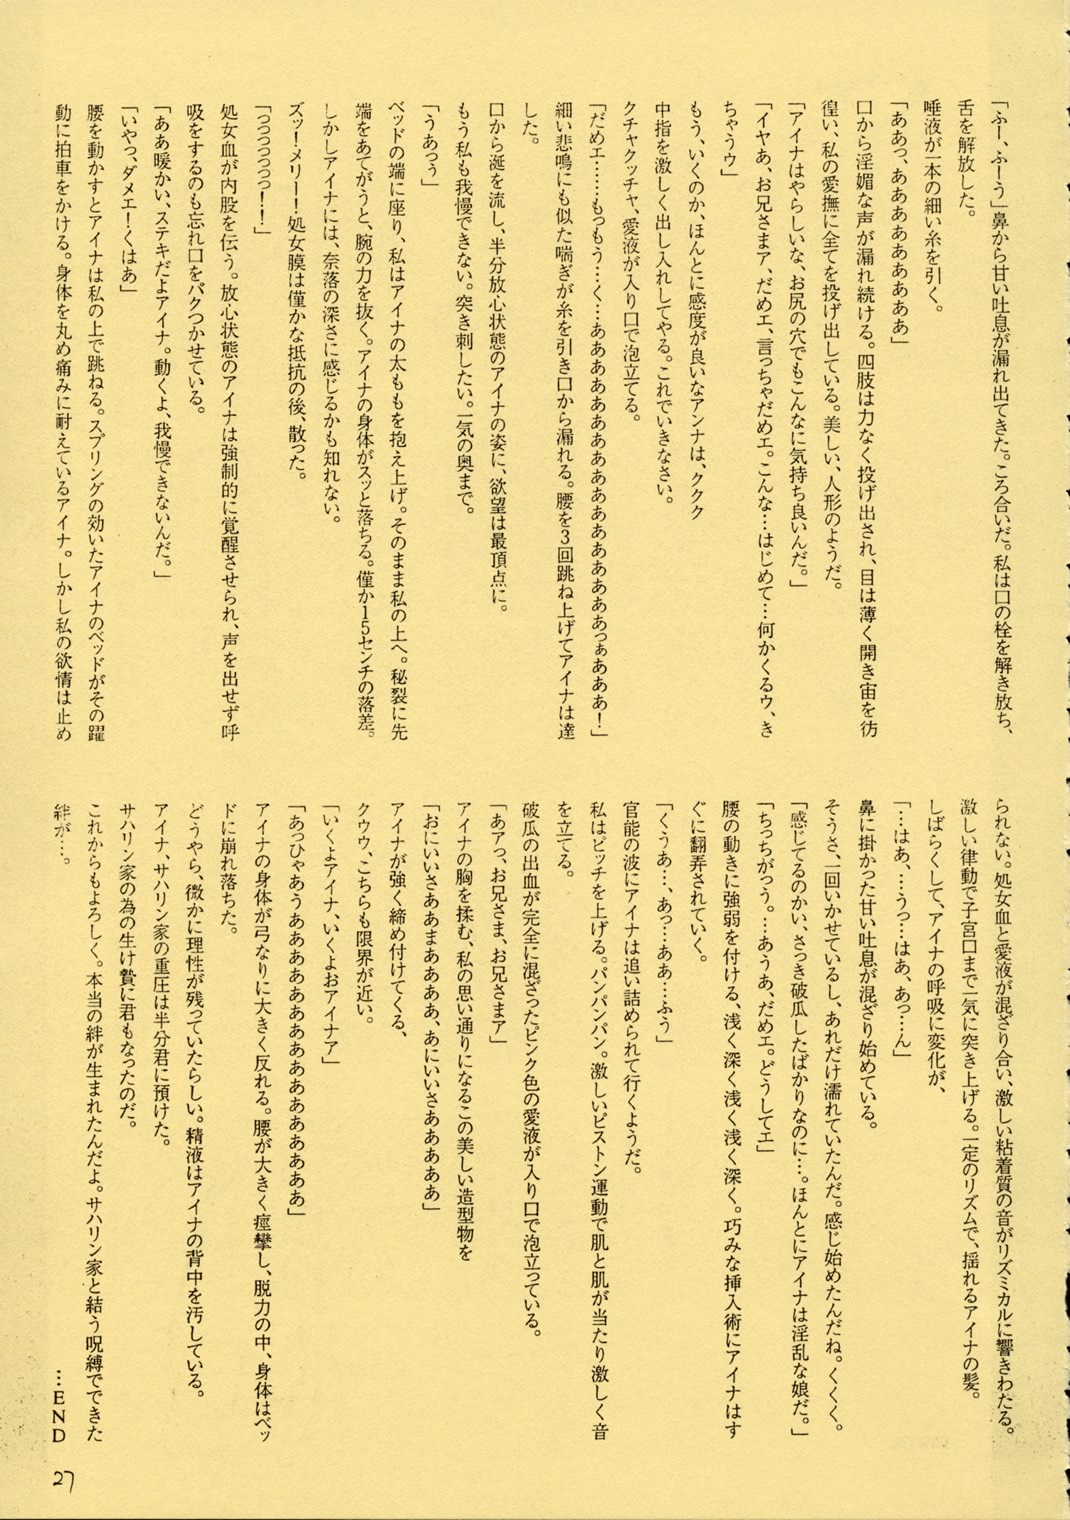 「ふー、ふーう」鼻から甘い吐息が漏れ出てきた。ころ合いだ。私は口の栓を解き放ち、
舌を解放した。
唾液が一本の細い糸を引く。
「ああっ、ああああああああああ」
口から淫媚な声が漏れ続ける。四肢は力なく投げ出され、目は薄く開き宙を彷
徨い、私の愛撫に全てを投げ出している。美しい、人形のようだ。
「アイナはやらしいな、お尻の穴でもこんなに気持ち良いんだ。」
「イヤあ、お兄さまア、だめエ、言っちゃだめエ。こんな…はじめて…何かくるゥ、き
ちゃうウ」
もう、いくのか、ほんとに感度が良いなアンナは、ククク
中指を激しく出し入れしてやる。これでいきなさい。
クチャクッチャ、愛液が入り口で泡立てる。
「だめエ……もっもう…く…ああああああああああああああああああああっぁあああ！」
細い悲鳴にも似た喘ぎが糸を引き口から漏れる。腰を3回跳ね上げてアイナは達
した。
口から涎を流し、半分放心状態のアイナの姿に、欲望は最頂点に。
もう私も我慢できない。突き刺したい。一気の奥まで。
「うあっぅ」
ベッドの端に座り、私はアイナの太ももを抱え上げ。そのまま私の上へ。秘裂に先
端をあてがうと、腕の力を抜く。アイナの身体がスッと落ちる。僅か15センチの落差。
しかしアイナには、奈落の深さに感じるかも知れない。
ズッ！メリー！処女膜は僅かな抵抗の後、散った。
「っっっっっ！！」
処女血が内股を伝う。放心状態のアイナは強制的に覚醒させられ、声を出せず呼
吸をするのも忘れ口をパクつかせている。
「ああ暖かい、ステキだよアイナ。動くよ、我慢できないんだ。」
「いやっ、ダメエ！くはあ」
腰を動かすとアイナは私の上で跳ねる。スプリングの効いたアイナのベッドがその躍
動に拍車をかける。身体を丸め痛みに耐えているアイナ。しかし私の欲情は止め
られない。処女血と愛液が混ざり合い、激しい粘着質の音がリズミカルに響きわたる。
激しい律動で子宮口まで一気に突き上げる。一定のリズムで、揺れるアイナの髪。
しばらくして、アイナの呼吸に変化が、
「…はあ、…うっ…はあ、あっ…ん」
鼻に掛かった甘い吐息が混ざり始めている。
そうさ、一回いかせているし、あれだけ濡れていたんだ。感じ始めたんだね。くくく。
「感じてるのかい、さっき破瓜したばかりなのに…。ほんとにアイナは淫乱な娘だ。」
「ちっちがっう。…あうあ、だめエ。どうしてエ」
腰の動きに強弱を付ける、浅く深く浅く浅く深く。巧みな挿入術にアイナはす
ぐに翻弄されていく。
「くうあ…、あっ…ああ…ふう」
官能の波にアイナは追い詰められて行くようだ。
私はピッチを上げる。パンパンパン。激しいピストン運動で肌と肌が当たり激しく音
を立てる。
破瓜の出血が完全に混ざったピンク色の愛液が入り口で泡立っている。
「あアっ、お兄さま、お兄さまア」
アイナの胸を揉む、私の思い通りになるこの美しい造型物を
「おにいさああまああああ、あにいいさああああああ」
アイナが強く締め付けてくる、
クウウ、こちらも限界が近い。
「いくよアイナ、いくよおアイナア」
「あっひゃあうああああああああああああああああああ」
アイナの身体が弓なりに大きく反れる。腰が大きく痙攣し、脱力の中、身体はベッ
ドに崩れ落ちた。
どうやら、微かに理性が残っていたらしい。精液はアイナの背中を汚している。
アイナ、サハリン家の重圧は半分君に預けた。
サハリン家の為の生け贄に君もなったのだ。
これからもよろしく。本当の絆が生まれたんだよ。サハリン家と結う呪縛でできた
絆が…。
…END
27